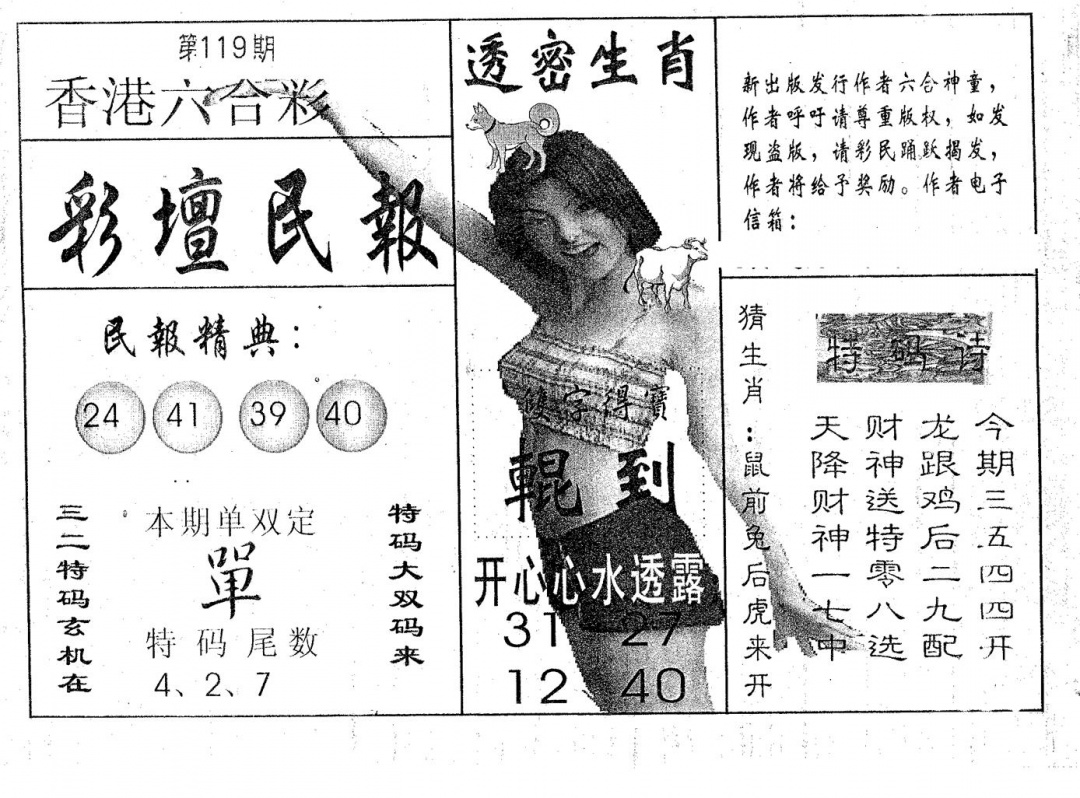 第119期
香港六合彩
彩壇民報
民報精典：
24 41 39 40
三二特码玄机在
本期单双定
單
特码尾数
4、2、7
特码大双码来
透密生肖
雙字得寶
輥到
开心心水透露
31 27
12 40
新出版发行作者六合神童，
作者呼吁请尊重版权，如发
现盗版，请彩民踊跃揭发，
作者将给予奖励。作者电子
信箱：
猜生肖：鼠前兔后虎来开
特码诗
今期三五四四开
龙跟鸡后二九配
财神送特零八选
天降财神一七中